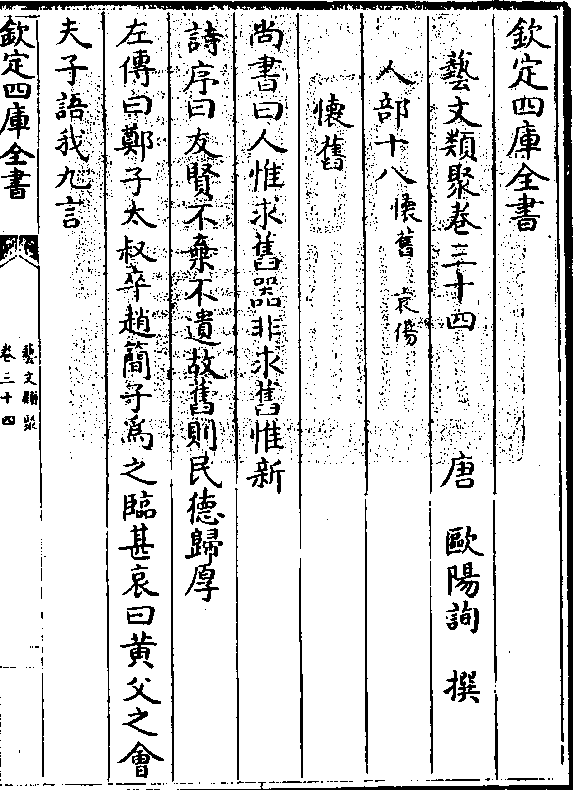 欽定四庫全書
藝文類聚卷三十四
唐 歐陽詢 撰
人部十八 懷舊 哀傷
懷舊
尚書曰人惟求舊器非求舊惟新
詩序曰友賢不棄不遺故舊則民德歸厚
左傳曰鄭子太叔卒趙簡子為之臨甚哀曰黄父之會
夫子語我九言
欽定四庫全書
藝文類聚
卷三十四